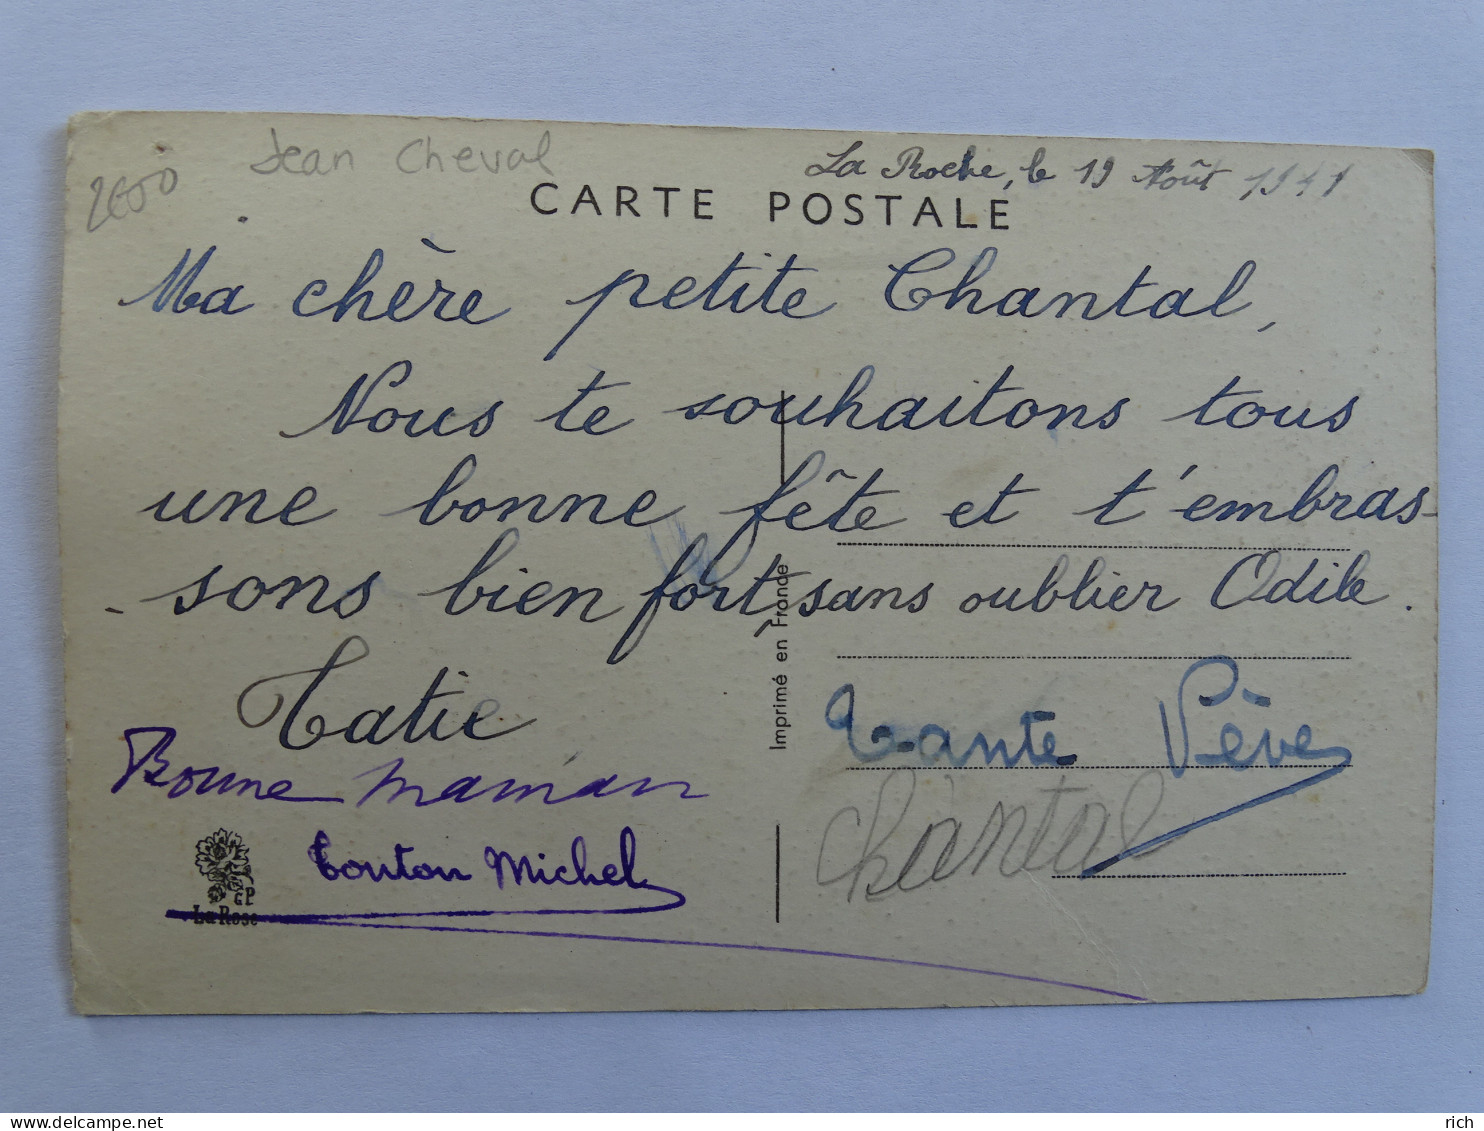 Jean Cheval
2€50
La Roche, le 19 Août 1941
CARTE POSTALE
Ma chère petite Chantal,
Nous te souhaitons tous
une bonne fête et t'embras-
- sons bien fort, sans oublier Odile.
Tatie
Tante Vève
Bonne maman
Chantal
tonton Michel
GP
La Rose
Imprimé en France
delcampe.net
rich